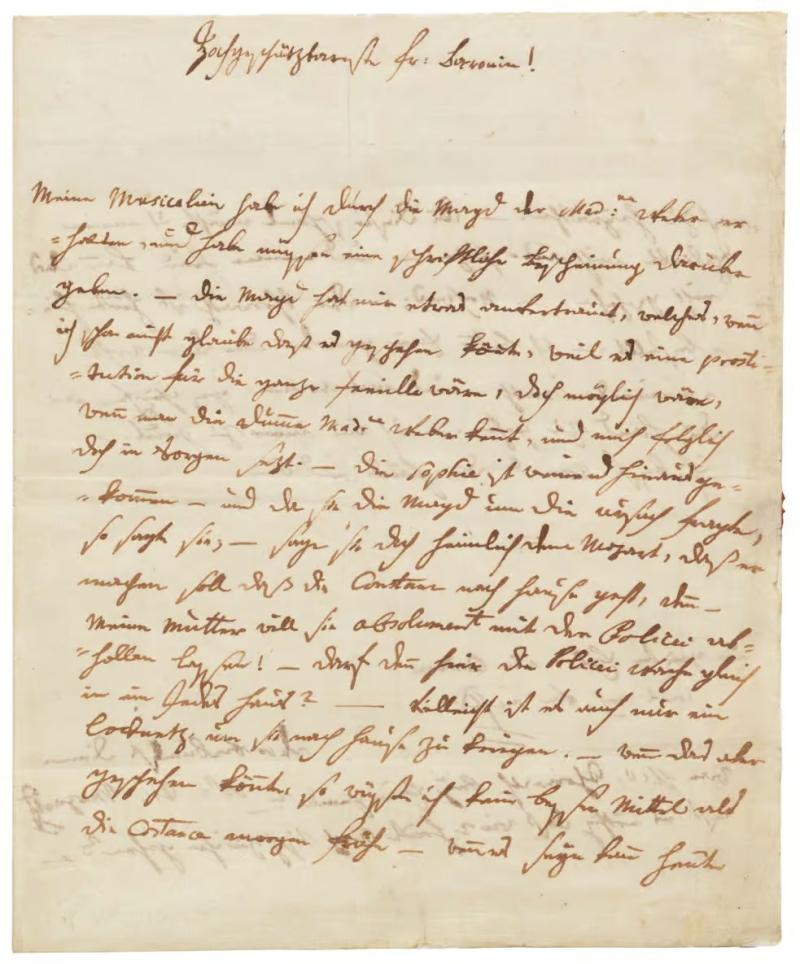 Hochgeschätzbareste fr: Baronin!
Meine Musicalien habe ich durch die Magd der Mad:me Weber er
=halten, und habe müssen eine schriftliche Bescheinung darüber
geben. — die Magd hat mir etwas anvertrauet, welches, wenn
ich schon nicht glaube daß es geschehen könnte, weil es eine prosti=
=tution für die ganze familie wäre, doch möglich wäre,
wenn man die dumme Mad:me Weber kennt, und mich folglich
doch in Sorgen setzt. — die sophie ist weinend hinausge=
=kommen — und da sie die Magd um die ursach fragte,
so sagte sie; — sage sie doch heimlich dem Mozart, daß er
machen soll daß die Constanz nach hause geht, denn —
Meine Mutter will sie absolument mit der Policei ab=
=hollen lassen! — darf denn hier die Policei wache gleich
in ein Jedes haus? — vielleicht ist es auch nur ein
locknetz um sie nach hause zu kriegen. — wenn das aber
geschehen könnte, so wüsste ich kein besser Mittel als
die Costanze morgen frühe — wenn es seyn kann heute